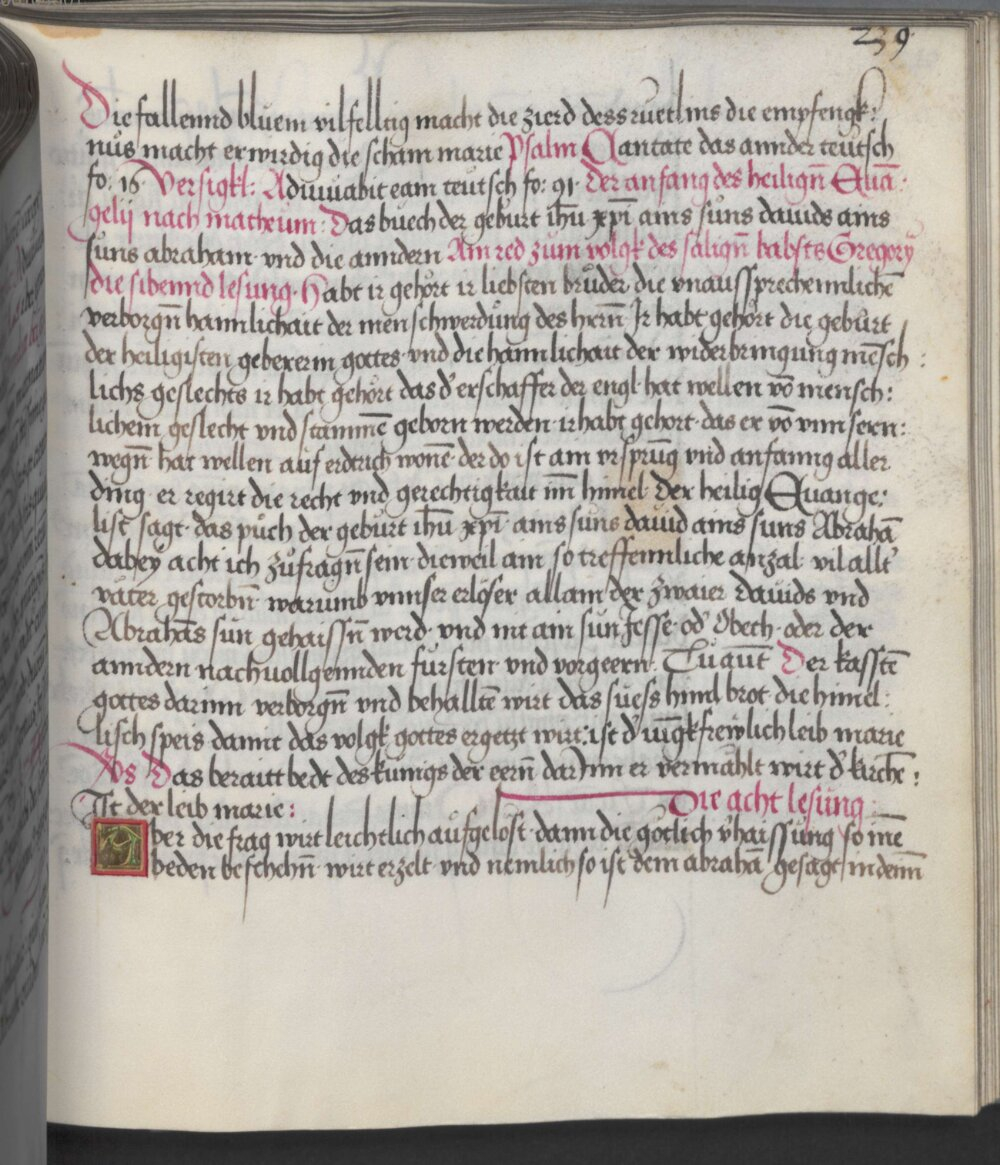 239
Die fallennd bluem vilfelltig macht die zierd dess ruetl ins die empfengk:
nŭs macht erwirdig die scham marie Psalm Cantate das annder teutsch
fo. 16 Versigkl: Adiuuabit eam teutsch fo: 91 der anfang des heilign̄ Euā:
gelij nach matheum: Das buech der gebŭrt ihū xp̄i ains sŭns dauids ains
sŭns abraham vnd die anndern Ain red zŭm volgk des salign̄ babsts Gregory
die sibennd lesung. Habt ir gehört ir liebsten brŭder die vnaussprechennlichē
verborgn̄ hannlichait der menschwerdŭng des herrn̄ Ir habt gehört die gebŭrt
der heiligisten gebererin gottes vnd die hannlichait der widerbringung mēsch:
lichs geslechts ir habt gehört das d' erschaffer der engl hat wellen vō mensch:
lichem geslecht vnd stammē geborn werden ir habt gehort das er vō vnnsern:
wegn̄ hat wellen auf erdtrich wonē der do ist ain vrsprŭng vnd anfanng aller
ding er regirt die recht vnd gerechtigkait im̄ himel Der heilig Euange:
list sagt das pŭch der gebŭrt ihū xp̄i ains sŭns dauid ains sŭns Abrahā
dabey acht ich zŭfragn̄ sein dieweil ain so treffennliche anzal vil allt'
väter gestorbn̄ warumb vnnser erlöser allain der zwaier dauids vnd
Abrahās sŭn gehaissn̄ werd vnd nit ain sŭn Jesse od' Obeth oder der
anndern nachuollgennden fursten vnd vorgeern. Tu aut̄ Der kasstē
gottes darinn verborgn̄ vnd behalltē wirt das suess himl brot die himel:
lisch speis damit das volgk gottes ergetzt wirt: ist d' iūgkfrewlich leib marie
Vs Das beraitt bedt des kŭnigs der eern̄ darInn er vermählt wirt d' kirchē:
It der leib marie:
Die acht lesŭng
Aber die frag wirt leichtlich aŭfgelöst dann die götlich v'haissŭng so mē
beden beschehn̄ wirt erzelt vnd nemlich so ist dem abrahā gesagt in deinn̄